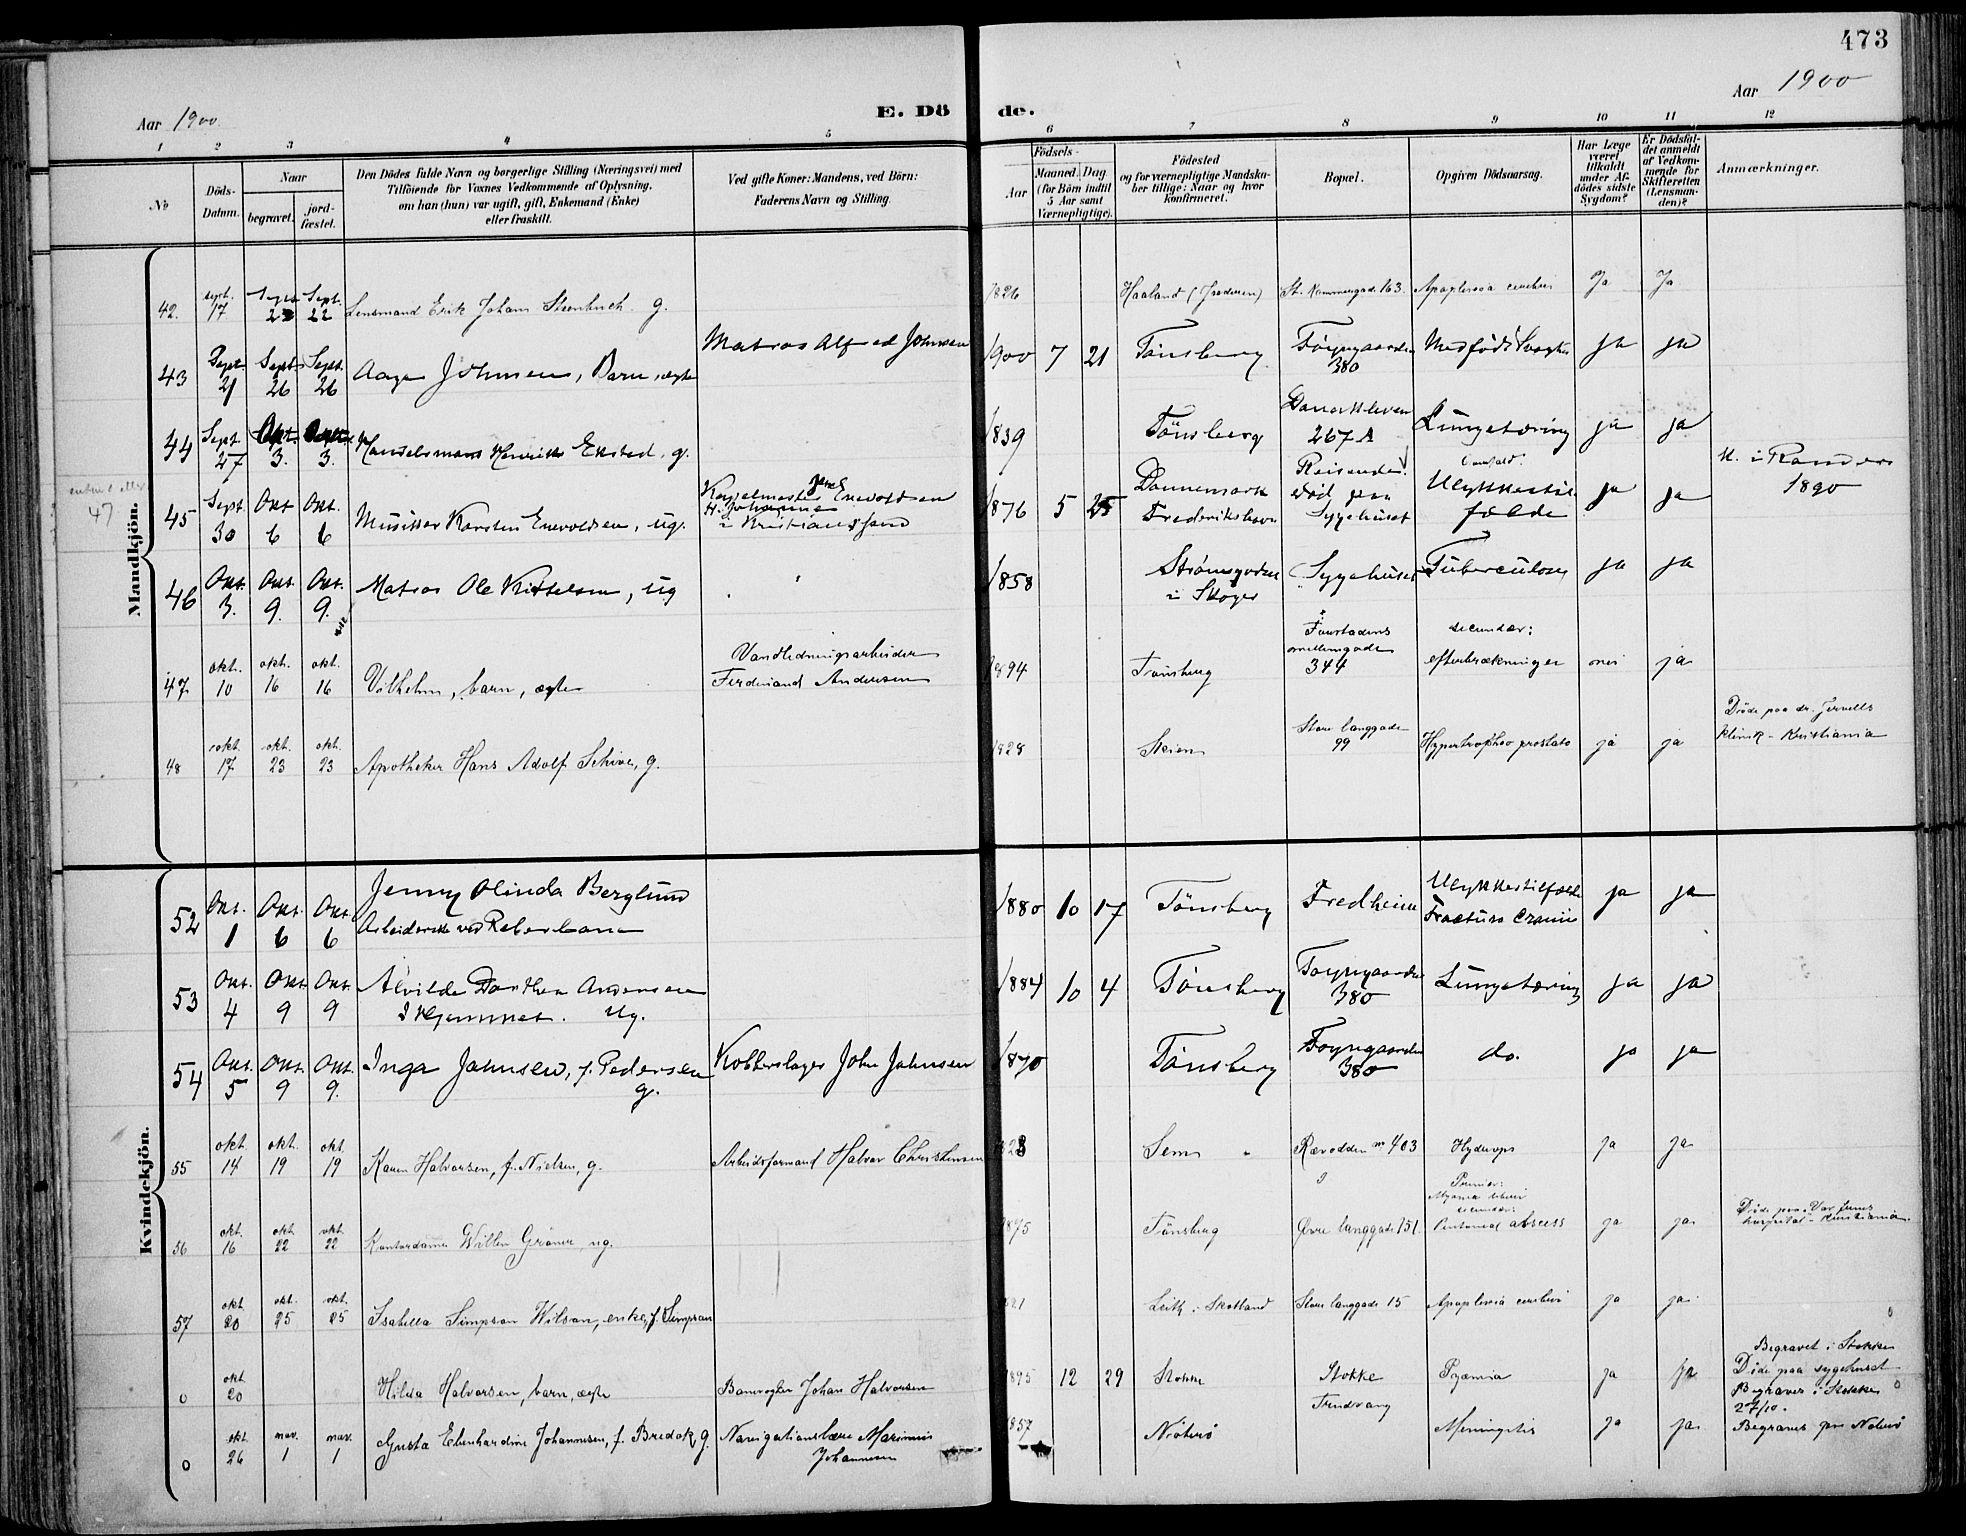 473
Aar 1900
E. Dö de.
Aar 1900
1 2 3 4 5 6 7 8 9 10 11 12
No
Döds-Datum.
Naar
begravet.
jord-fæstet.
Den Dödes fulde Navn og borgerlige Stilling (Næringsvei) med
Tilföiende for Voxnes Vedkommende af Oplysning,
om han (hun) var ugift, gift, Enkemand (Enke)
eller fraskilt.
Ved gifte Koner: Mandens, ved Börn:
Faderens Navn og Stilling.
Födsels-
Aar
Maaned. Dag.
(for Börn indtil
5 Aar samt
Værnepligtige).
Födested
og for værnepligtige Mandska-
ber tillige: Naar og hvor
konfirmeret.
Bopæl.
Opgiven Dödsaarsag.
Har Læge
været
tilkaldt
under Af-
dödes sidste
Sygdom?
Er Dödsfal-
det anmeldt
af Vedkom-
mende for
Skifteretten
(Lensman-
den)?
Anmærkninger.
Mandkjön.
42. sept. 17. Sept. 22 Sept. 22 Lensmand Erik Johan Steenbuch. g. 1826 Haaland (Jæderen) St. Kammegade 163. Apoplexia cerebri Ja Ja
43 Sept. 21 Sept. 26 Sept. 26 Aage Johnsen, Barn, ægte Matros Alfred Johnsen 1900 7 21 Tönsberg Föyngaarden 380 Medfödt Svaghed ja ja
44 Sept. 27 Okt. 3. 3. Handelsmand Henrik Ekstad, g. 1839 Tönsberg 267 A Lungetæring ja ja
47
45 Sept. 30 Okt 6 Okt. 6 Musiker Karsten Enevoldsen, ug. Kapelmester Jens Enevoldsen i Kristianssand 1876 5 25 Dannemark Frederikshavn Reisende. död paa Sygehuset Ulykkestilfælde ja ja K. i Randers 1890
46 Okt. 3. Okt. 9. Okt. 9. Matros Ole Kittelsen, ug 1858 Strömsgodset i Skoger Sygehuset Tuberculose ja ja
47 okt. 10 okt. 16 okt. 16 Vilhelm, barn, ægte Vandledningsarbeider Ferdinand Andersen 1894 Tönsberg 344 secundær: efterbrækninger nei ja
48 okt. 17. okt. 23 okt. 23 Apotheker Hans Adolf Schive, g. 1828 Skien Store langgade 99 Hypertrophia prostata ja ja Döde paa dr. Jervells klinik - Kristiania
Kvindekjön.
52 Okt. 1 Okt. 6 Okt. 6 Jenny Olinda Berglund Arbeiderske ved Reberbanen 1880 10 17 Tönsberg Fredheim Ulykkestilfælde Fractura Cranii ja ja
53 Okt. 4 Okt. 9 Okt. 9 Alvilde Dorthea Andersen I Hjemmet. ug. 1884 10 4 Tönsberg Foyngaarden 380 Lungetæring ja ja
54 Okt. 5 Okt. 9 Okt. 9. Inga Johnsen, f. Pedersen g. Kobberslager John Johnsen 1870 Tönsberg Foyngaarden 380 do. ja ja
55 okt. 14 okt. 19 okt. 19 Karen Halvorsen, f. Nielsen, g. Arbeidsformand Halvor Christensen 1828 Sem Ravodden no 403 Hydrops ja ja
56 okt. 16 okt. 22 okt. 22 Kontordame Willen Gröner, ug. 1875 Tönsberg Övre langgade 151. Primær: secundær: abscess ja ja Döde paa Vor frues hospital - Kristiania
57 okt. 20 okt. 25 okt. 25 Isabella Simpson Wilson, enke, f. Simpson 1821 Leith i Skotland Store langgade 15 Apoplexia cerebri ja ja
0 okt 20 Hilda Halvorsen, barn, ægte Banevogter Johan Halvorsen 1895 12 29 Stokke Stokke Pyæmia ja ja Begravet i Stokke Döde paa sygehuset Begraves i Stokke 27/10.
0 okt. 26 nov. 1 nov. 1 Gusta Edenhardine Johannesen, f. Bredok g. Navigationslærer Marinius Johannesen 1857 Nöterö Trudvang Meningitis ja ja Begraves paa Nöterö